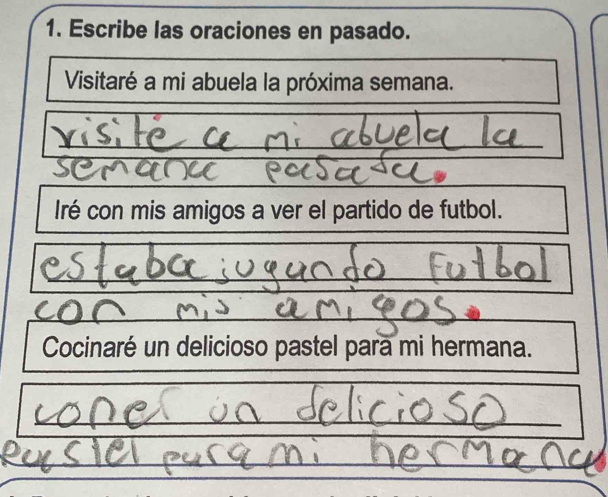 1. Escribe las oraciones en pasado.
Visitaré a mi abuela la próxima semana.
visité a mi abuela la
semana pasada.
Iré con mis amigos a ver el partido de futbol.
estaba jugando Futbol
con mis amigos.
Cocinaré un delicioso pastel para mi hermana.
un delicioso
pastel para mi hermana